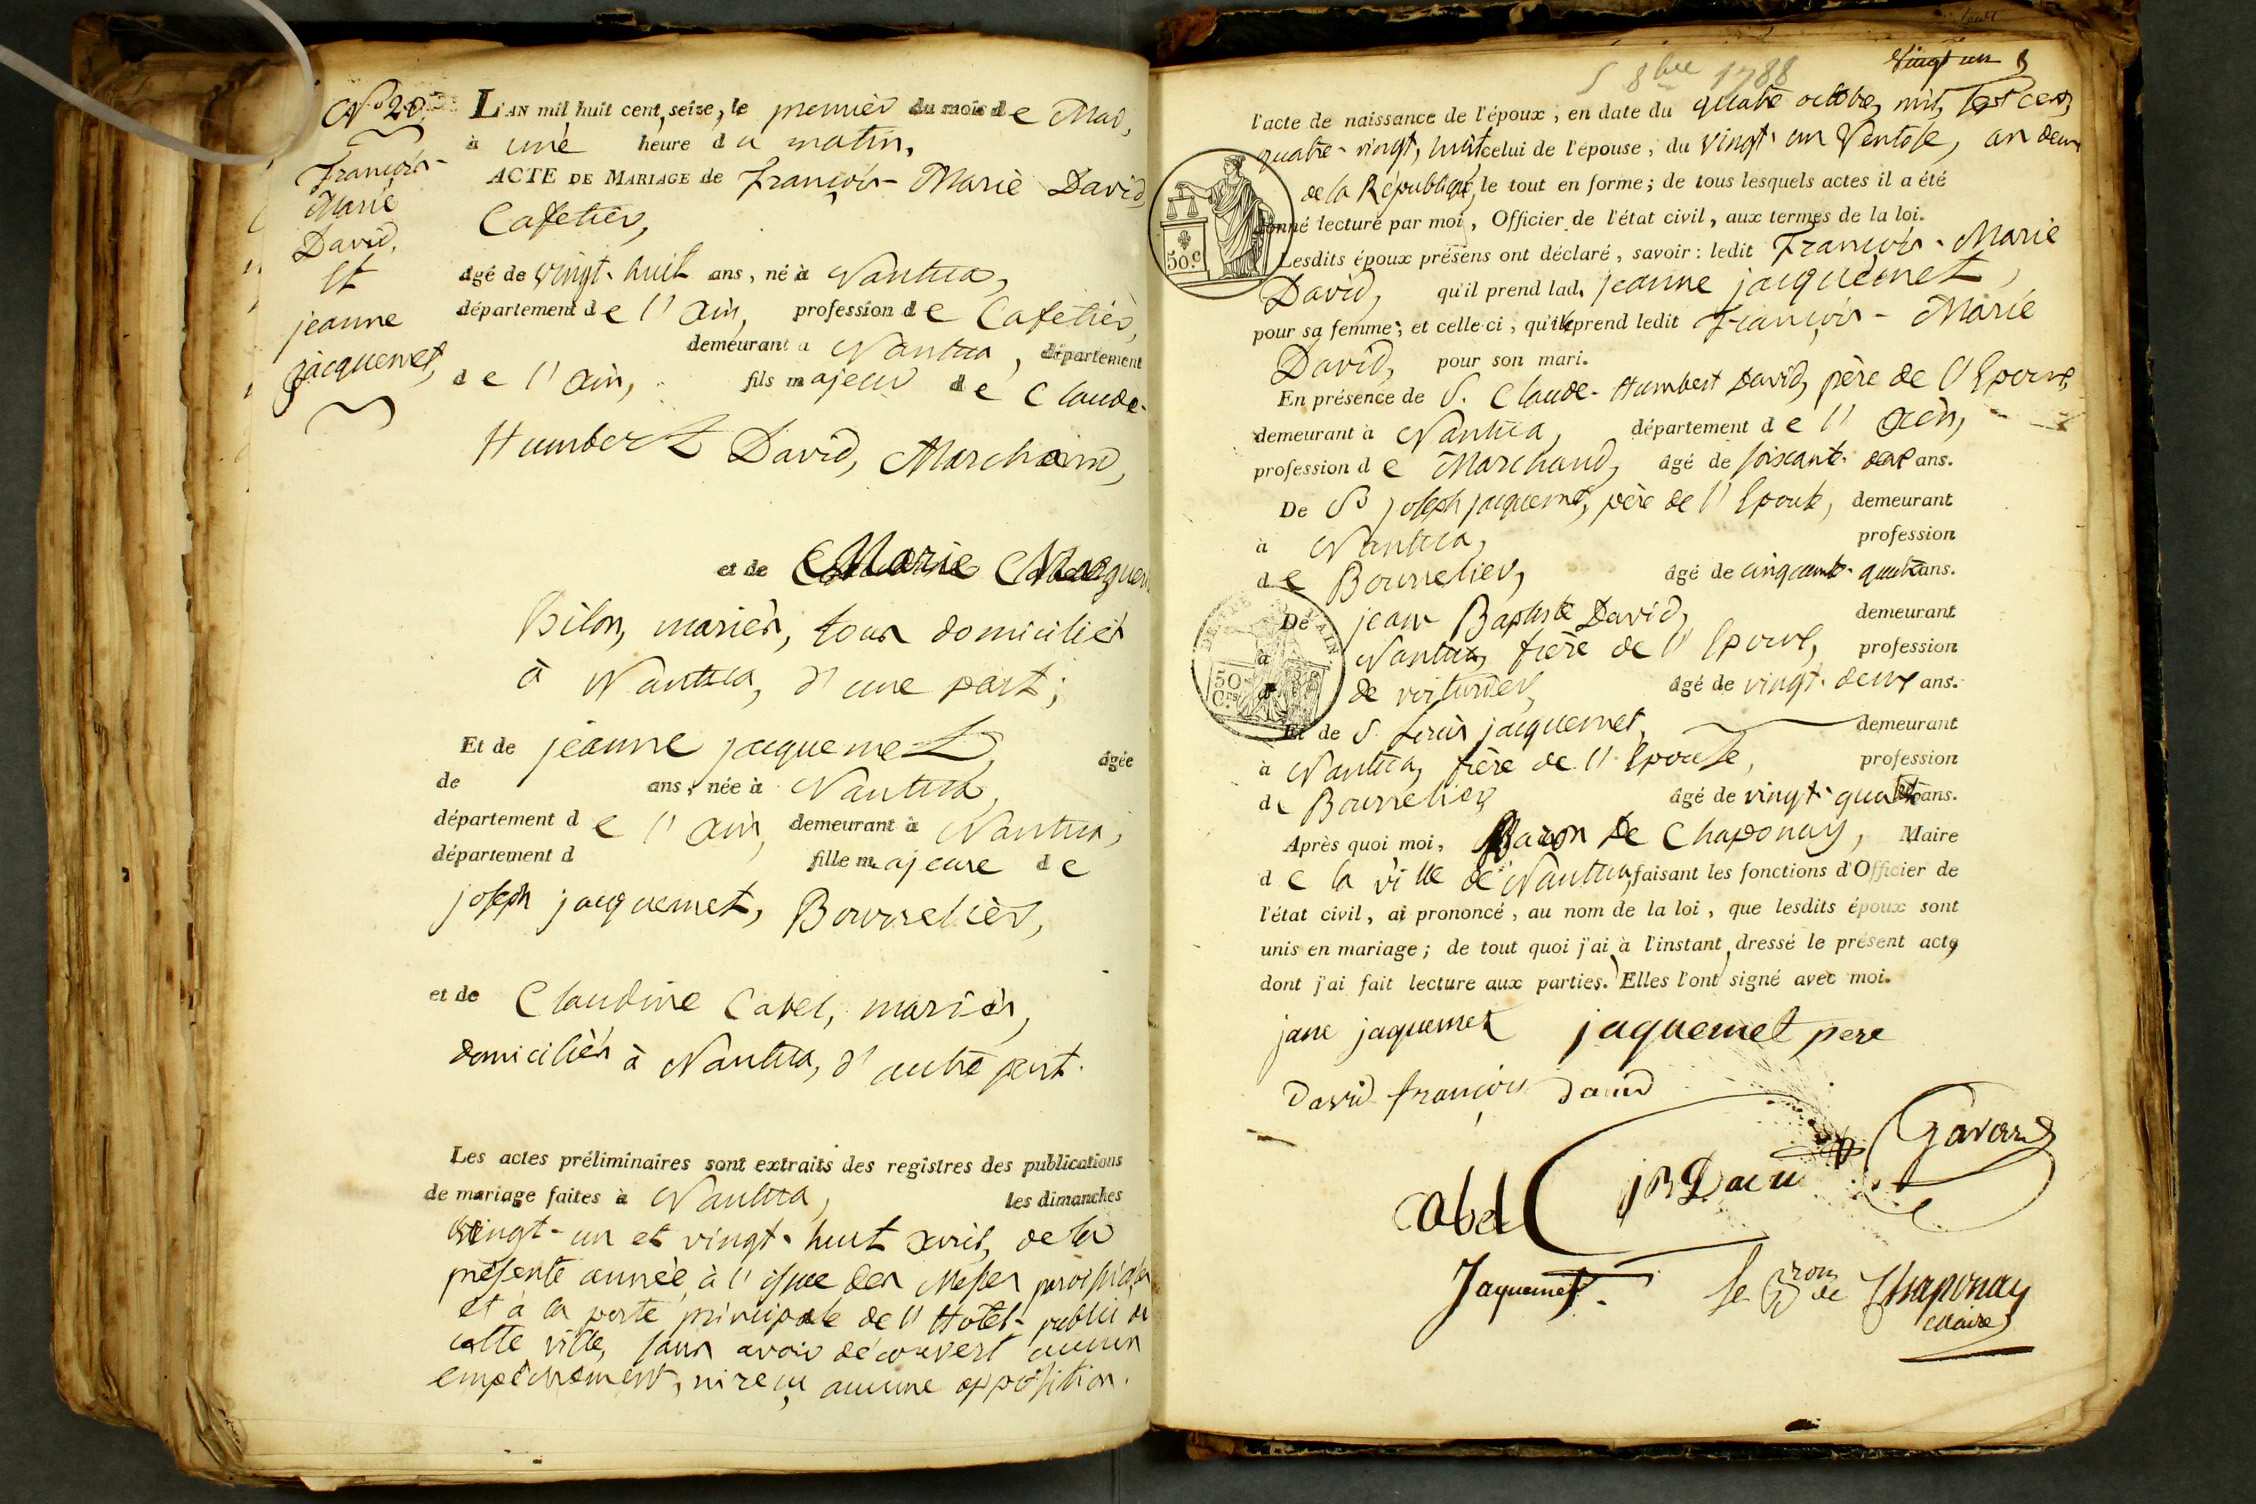 N.º 20.
François-
Marie
David,
Et
jeanne
jacquemet,
L'AN mil huit cent, seize, le premier du mois de Mai,
à une heure du matin,
ACTE DE MARIAGE de François-Marie David
Cafetier,
âgé de vingt-huit ans, né à Nantua,
département de l'Ain, profession de Cafetier,
demeurant a Nantua, département
de l'Ain, fils majeur de Claude-
Humbert David, Marchand,
et de Marie
Bilon, mariés, tous domiciliés
à Nantua, d'une part;
Et de jeanne jacquemet, âgée
de ans, née à Nantua,
département de l'Ain, demeurant à Nantua,
département d fille majeure de
joseph jacquemet, Bourrelier,
et de Claudine Cabel, mariés,
domiciliés à Nantua, d'autre part.
Les actes préliminaires sont extraits des registres des publications
de mariage faites à Nantua, les dimanches
vingt-un et vingt-huit avril, de la
présente année, à l'issue des Messes paroissiales
et à la porte principale de l'Hôtel-public de
cette ville, sans avoir découvert aucun
empêchement, ni reçu aucune opposition.
5 8bre 1788
Vingt un
l'acte de naissance de l'époux, en date du quatre octobre, mil, sept cent,
quatre-vingt, huit celui de l'épouse, du vingt-un Ventose, an deux
de la République, le tout en forme; de tous lesquels actes il a été
donné lecture par moi, Officier de l'état civil, aux termes de la loi.
Lesdits époux présens ont déclaré, savoir: ledit François-Marie
David, qu'il prend lad. jeanne jacquemet,
pour sa femme; et celle-ci, qu'elle prend ledit François-Marie
David, pour son mari.
En présence de S. Claude-Humbert David, père de l'Epoux,
demeurant à Nantua, département de l'Ain,
profession de Marchand, âgé de soixante-deux ans.
De S. joseph jacquemet, père de l'Epouse, demeurant
à Nantua, profession
de Bourrelier, âgé de cinquante-quatre ans.
De jean Baptiste David, demeurant
à Nantua, frère de l'Epoux, profession
de voiturier, âgé de vingt-deux ans.
Et de S. jacquemet, demeurant
à Nantua, frère de l'Epouse, profession
de Bourrelier, âgé de vingt-quatre ans.
Après quoi moi, Baron De Chaponay, Maire
de la ville de Nantua, faisant les fonctions d'Officier de
l'état civil, ai prononcé, au nom de la loi, que lesdits époux sont
unis en mariage; de tout quoi j'ai à l'instant dressé le présent acte,
dont j'ai fait lecture aux parties. Elles l'ont signé avec moi.
50.c
50
C.es
jane jaquemet jaquemet pere
David françois David
Gavard
Cabel JB David
Jaquemet le Bron de Chaponay
Maire